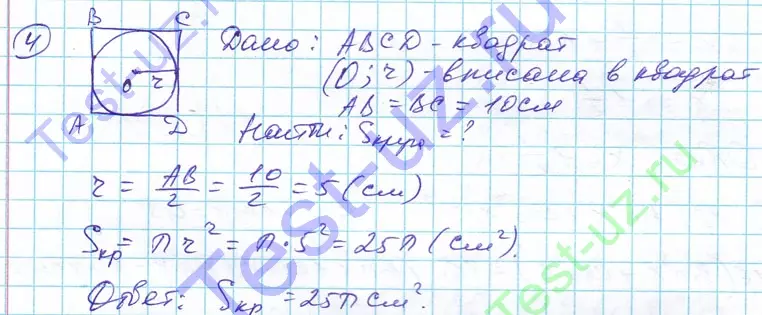 4
B C
Дано: ABCD - квадрат
(O; r) - вписана в квадрат
AB = BC = 10см
O r
A D
Найти: Sкруга = ?
r = AB/2 = 10/2 = 5 (см)
Sкр = πr² = π·5² = 25π (см²).
Ответ: Sкр = 25π см².
Test-uz.ru
Test-uz.ru
Test-uz.ru